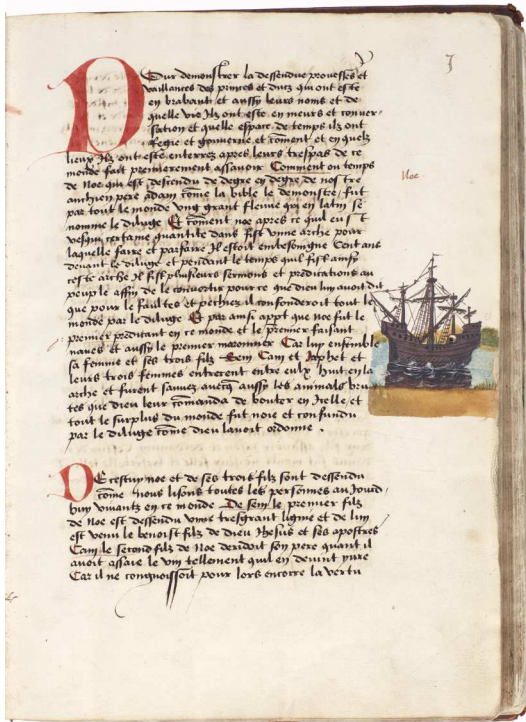 J
Pour demonstrer la dessendue prouesses et
vaillances des princes et ducz qui ont este
en brabant et aussy leurs noms et de
quelle vie Ilz ont este en meurs et conver-
sation et quelle espace de temps ilz ont
Regie et gouverne et coment et en quelz
lieux Ilz ont este enterrez apres leurs trespas de ce
monde fait premierement assavoir Comment ou temps
de Noe qui est descendu de degre en degre de nostre
anchien pere adam come la bible le demonstre fut
par tout le monde ung grant fleuve qui en latin se
nomme le diluge Et coment noe apres ce quil eust
vesqui certaine quantite dans fist une arche pour
laquelle faire et parfaire Il estoit embesoingne Cent ans
devant le diluge et pendant le temps quil fist ainsy
ceste arche Il fist pluseurs sermons et predications au
peuple affin de le convertir pour ce que dieu luy avoit dit
que pour le faultes et pechiez il confonderoit tout le
monde par le diluge Et par ainsi appt que noe fut le
premier predicant en ce monde et le premier faisant
naves et aussi le premier maronnier Car luy ensemble
sa femme et ses trois filz Sem Cam et Japhet et
leurs trois femmes entrerent entre eulx huit en la
arche et furent sauvez avecq aussy les animals bru
tes que dieu leur comanda de bouter en Icelle et
tout le surplus du monde fut noie et confundu
par le diluge come dieu lavoit ordonne .
Noe
DE cestuy noe et de ses trois filz sont dessendu
come nous lisons toutes les personnes au Jourd-
huy vivantz en ce monde De sem le premier filz
de Noe est dessendu une tresgrant ligne et de luy
est venu le benoist filz de dieu Jhesus et ses apostres
Cam le second filz de Noe deridoit son pere quant il
avoit assaie le vin tellement quil en devint yvre
Car il ne congnoissoit pour lors encorre la vertu